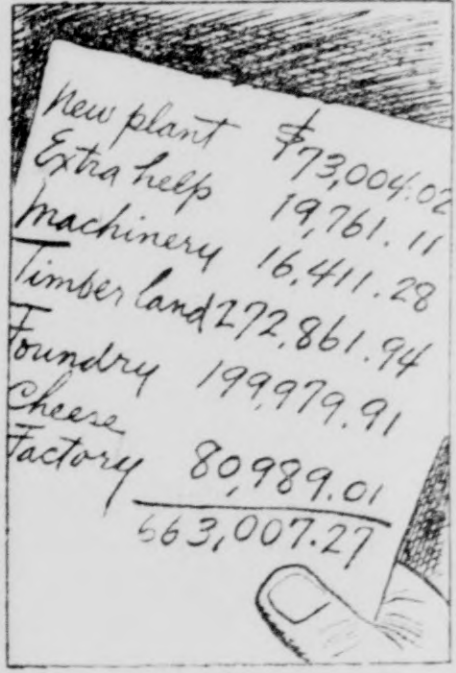 New plant $73,004.02
Extra help 19,761.11
Machinery 16,411.28
Timber land 272,861.94
Foundry 199,979.91
Cheese
Factory 80,989.01
663,007.27